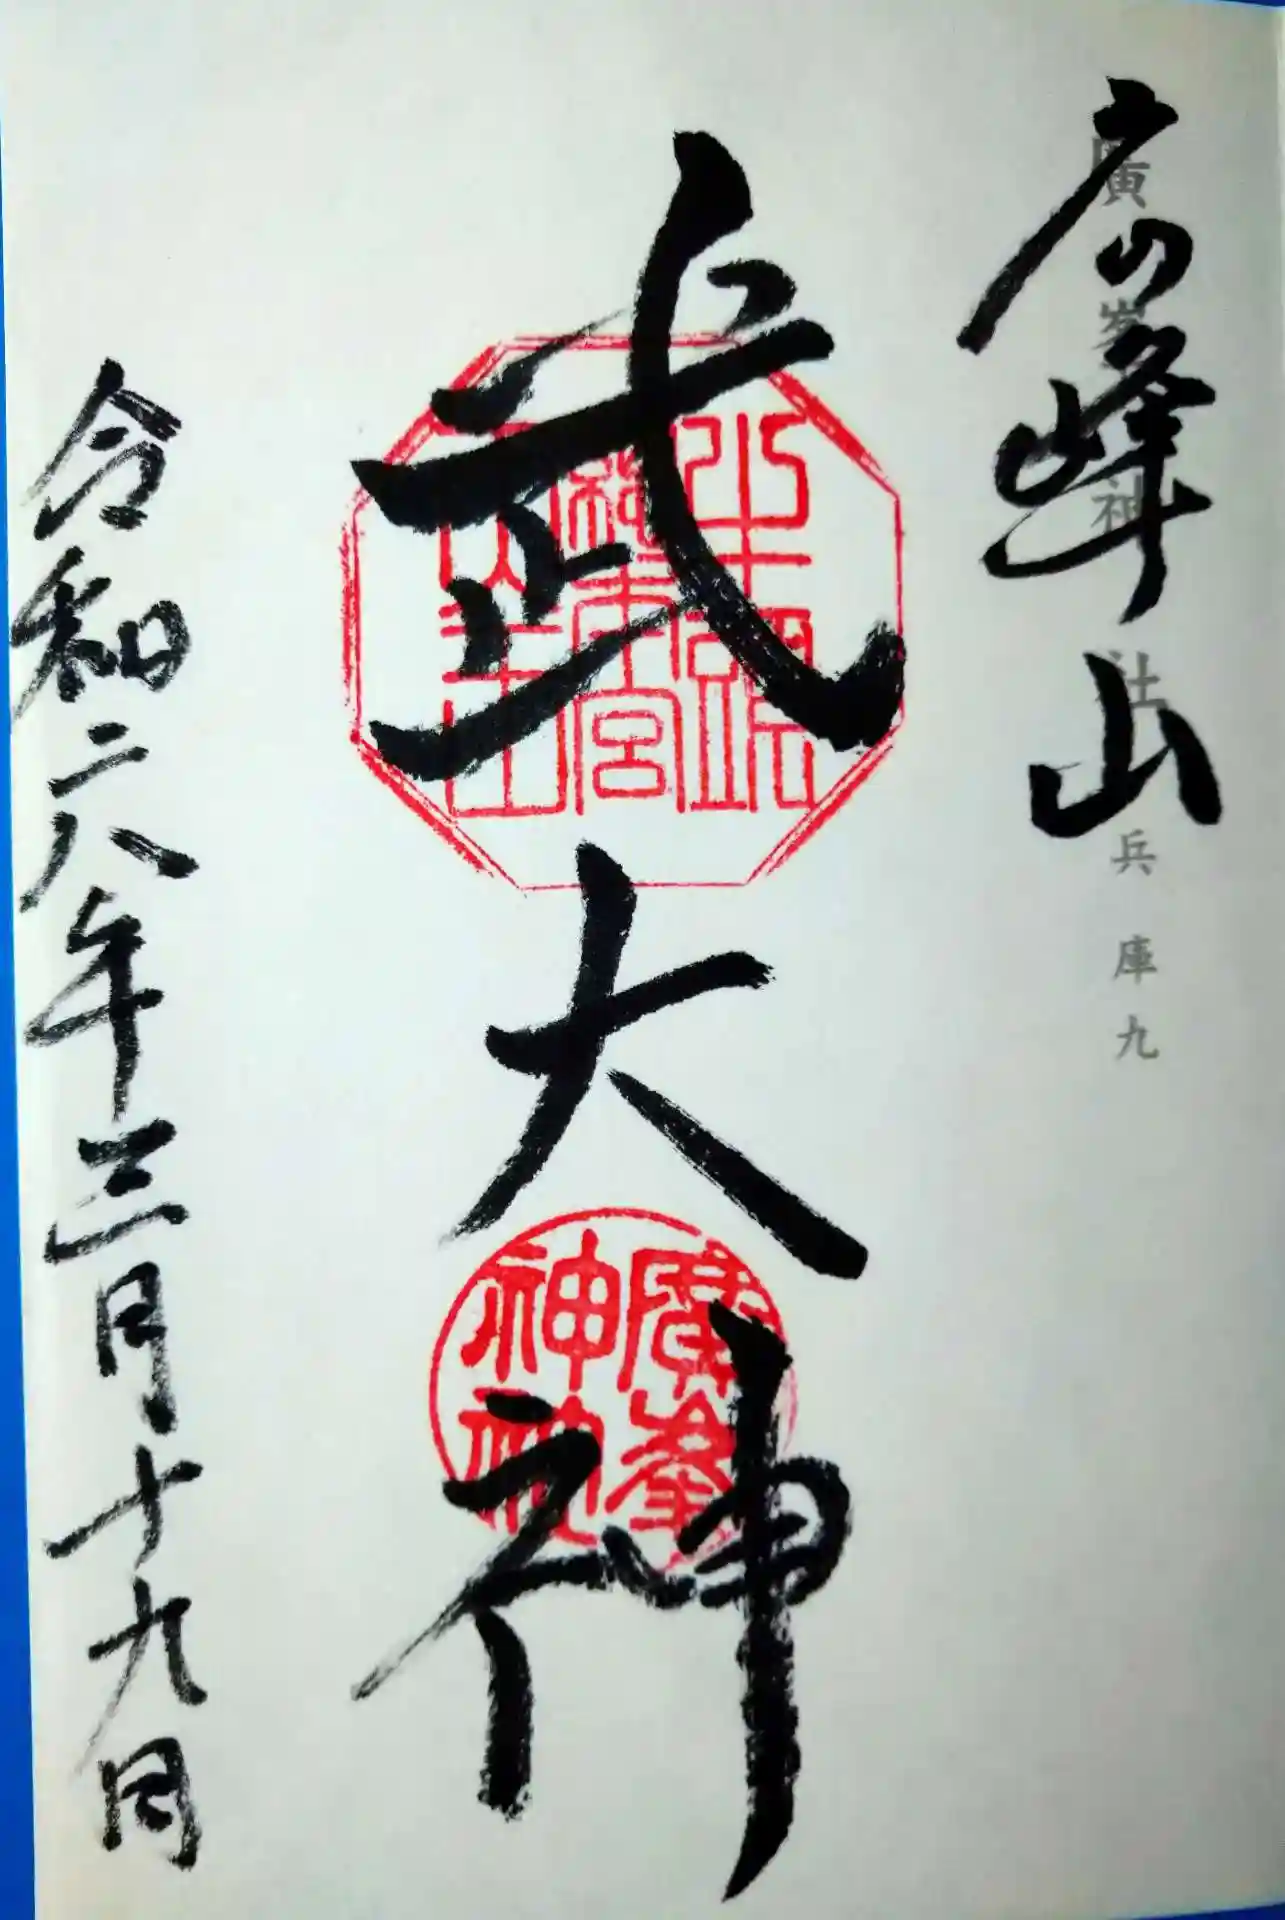 広峰山
廣峯神社 兵庫九
武大神
廣峯
神社
令和二八年三月十九日